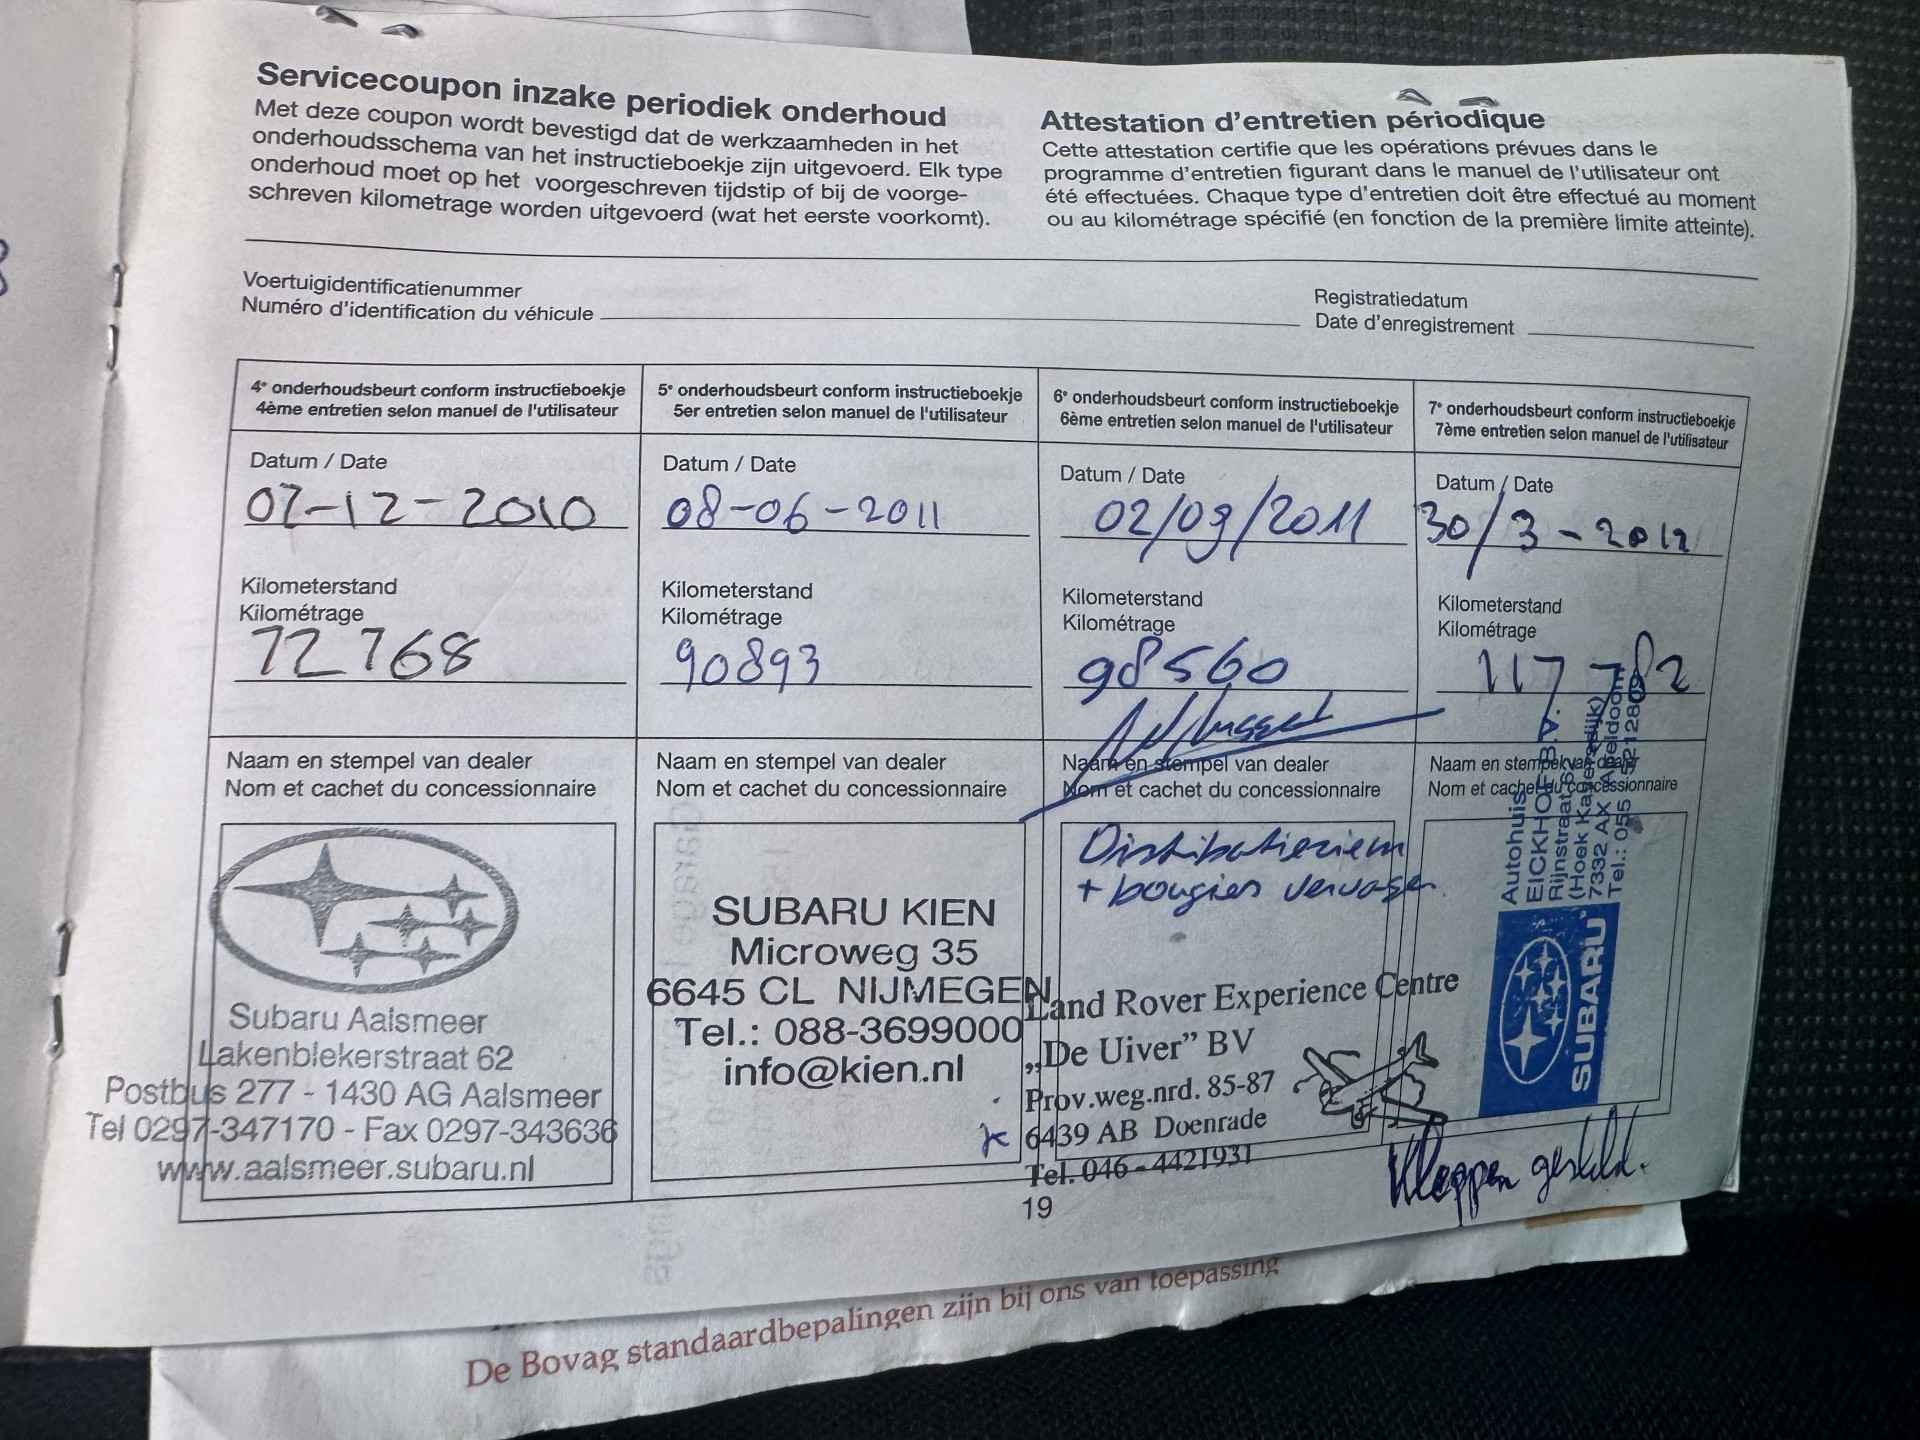 Servicecoupon inzake periodiek onderhoud
Met deze coupon wordt bevestigd dat de werkzaamheden in het
onderhoudsschema van het instructieboekje zijn uitgevoerd. Elk type
onderhoud moet op het voorgeschreven tijdstip of bij de voorge-
schreven kilometrage worden uitgevoerd (wat het eerste voorkomt).
Attestation d'entretien périodique
Cette attestation certifie que les opérations prévues dans le
programme d'entretien figurant dans le manuel de l'utilisateur ont
été effectuées. Chaque type d'entretien doit être effectué au moment
ou au kilométrage spécifié (en fonction de la première limite atteinte).
Voertuigidentificatienummer
Numéro d'identification du véhicule
Registratiedatum
Date d'enregistrement
4e onderhoudsbeurt conform instructieboekje
4ème entretien selon manuel de l'utilisateur
Datum / Date
07-12-2010
Kilometerstand
Kilométrage
72768
Naam en stempel van dealer
Nom et cachet du concessionnaire
Subaru Aalsmeer
Lakenblekerstraat 62
Postbus 277 - 1430 AG Aalsmeer
Tel 0297-347170 - Fax 0297-343636
www.aalsmeer.subaru.nl
5e onderhoudsbeurt conform instructieboekje
5er entretien selon manuel de l'utilisateur
Datum / Date
08-06-2011
Kilometerstand
Kilométrage
90893
Naam en stempel van dealer
Nom et cachet du concessionnaire
SUBARU KIEN
Microweg 35
6645 CL NIJMEGEN
Tel.: 088-3699000
info@kien.nl
6e onderhoudsbeurt conform instructieboekje
6ème entretien selon manuel de l'utilisateur
Datum / Date
02/09/2011
Kilometerstand
Kilométrage
98560
Naam en stempel van dealer
Nom et cachet du concessionnaire
Distributieriem
+ bougies vervagen
Land Rover Experience Centre
„De Uiver" BV
Prov.weg.nrd. 85-87
6439 AB Doenrade
Tel. 046 - 4421931
7e onderhoudsbeurt conform instructieboekje
7ème entretien selon manuel de l'utilisateur
Datum / Date
30/3-2012
Kilometerstand
Kilométrage
117782
Naam en stempel van dealer
Nom et cachet du concessionnaire
Autohuis
EICKHOF B.V.
Rijnstraat 62
(Hoek Kayersdijk)
7332 AX Apeldoorn
Tel.: 055 - 5212809
SUBARU
Kleppen gesteld.
19
De Bovag standaardbepalingen zijn bij ons van toepassing